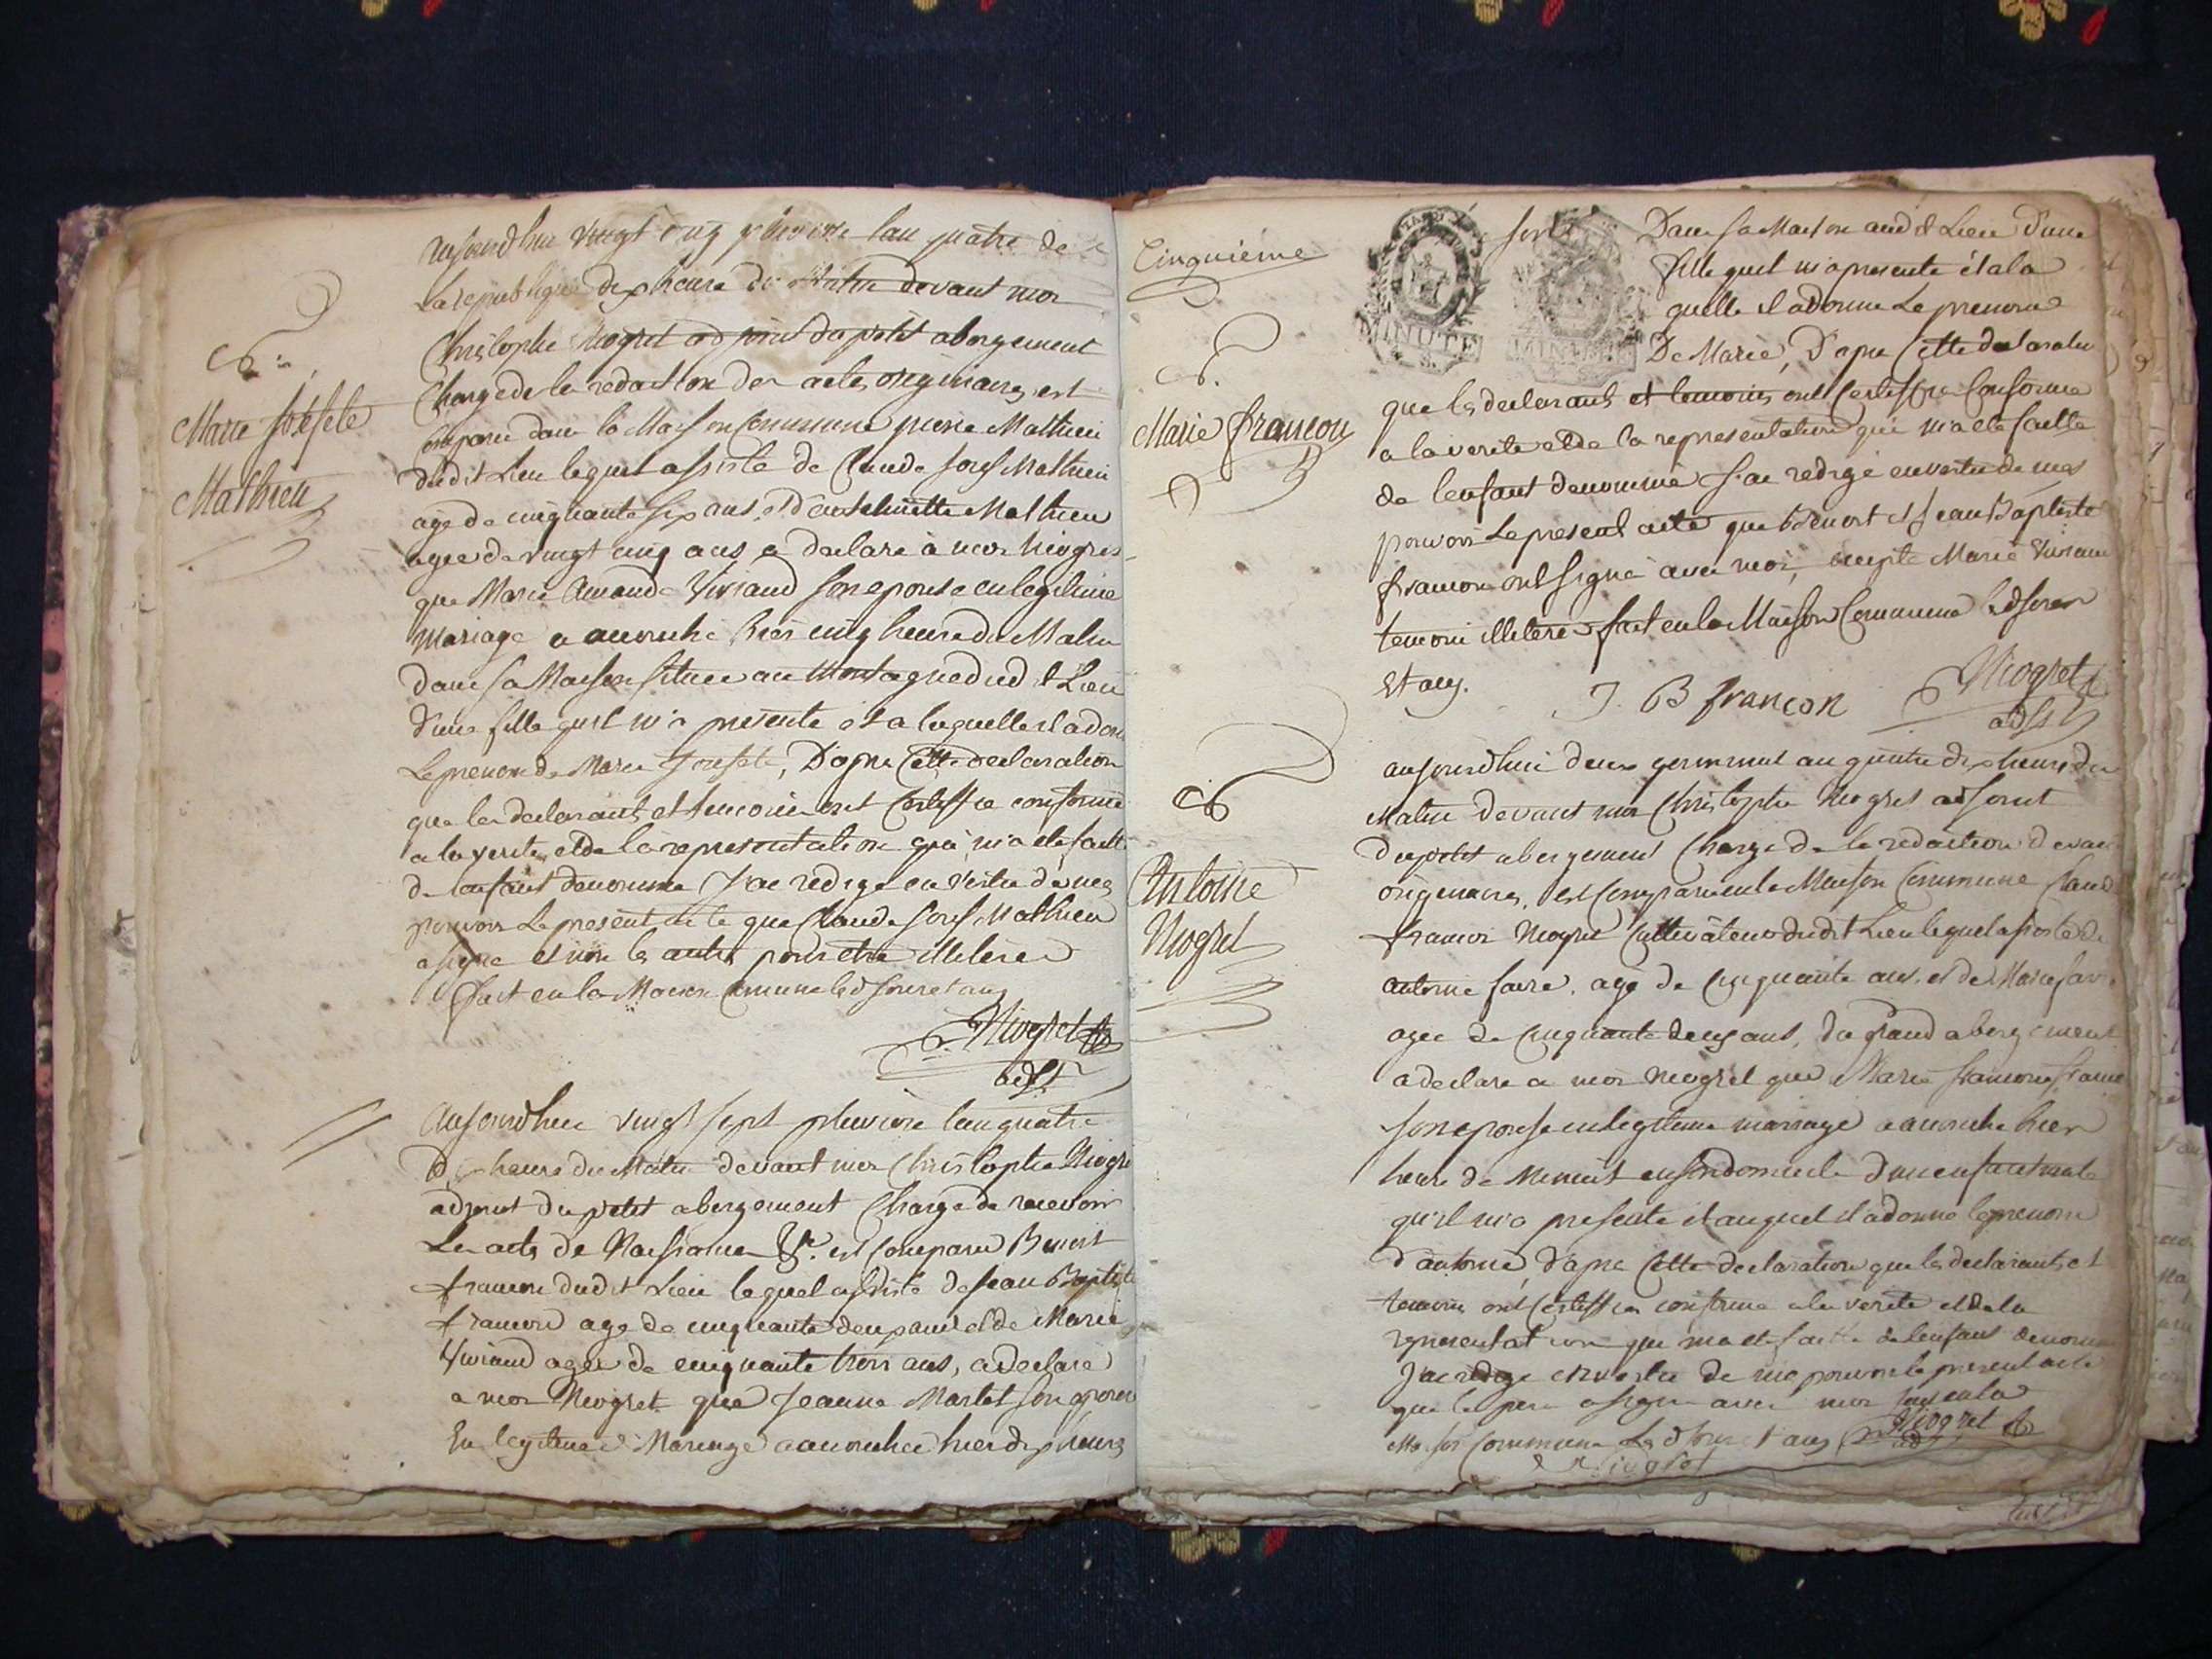 aujourdhui vingt cinq pluviose lan quatre de
la republique dix heure du Matin devant moi
Christophe Niogret adjoint du petit abergement
Chargé de la redaction des actes originaires est
comparu dans la Maison Commune pierre Mathieu
dudit Lieu lequel assisté de Claude Josef Mathieu
agé de cinquante six ans, et Mathieu
agée de vingt cinq ans a declaré à moi Niogret
que Marie Viviand son epouse en legitime
mariage a accouché hier cinq heure du Matin
dans sa Maison situee au Montagne dud t Lieu
d'une fille quil m'a presenté et a laquelle il a donn
Le prenom de Marie Josefete, D'apres Cette declaration
que les declarants et temoins ont Certiffié conforme
a la verite, et de la representation qui m'a ete faitte
de lenfant denommé J'ai redigé en vertu de mes
pouvoirs Le present acte que Claude Josef Mathieu
a signé et non les autres pour etre illeteré
fait en la Maison Commune led jour et an
Niogret
adjt
Marie Josefete
Mathieu
aujourdhui vingt sept pluviose lan quatre
dix heure du Matin devant moi Christophe Niogre
adjoint du petit abergement Chargé de recevoir
Les actes de Naissance &c. est comparu Benoit
francon dudit Lieu lequel assisté de Jean Baptiste
francon agé de cinquante deux ans et de Marie
Viviand agée de cinquante trois ans, a declaré
a moi Niogret que Jeanne Martet son epouse
En legitime Mariage a accouchée hier dix heures
Cinquième
MINUTE
MINUTE
Dans sa Maison aud t Lieu d'une
fille quil m'a presenté et a la
quelle il a donné Le prenom
De Marie, D'apres Cette declaration
que les declarants et temoins ont Certiffié Conforme
a la verite et de la representation qui m'a ete faitte
de lenfant denommé J'ai redigé en vertu de mes
pouvoirs Le present acte que Benoit et Jean Baptiste
francon ont signé avec moi, excepté Marie Viviand
temoin illeteré fait en la Maison Commune led jour
et an.
J. B francon
Niogret
adjt
Marie francon
aujourdhui deux germinal an quatre dix heure du
Matin devant moi Christophe Niogret adjoint
du petit abergement Chargé de la redaction des act
originaires, est comparu en la Maison Commune Claud
francois Niogret Cultivateur dudit Lieu lequel assisté de
antoine favre. agé de Cinquante ans. et de Marie favr
agée de Cinquante deux ans, du grand abergement
a declaré a moi Niogret que Marie
son epouse en legitime mariage a accouché hier
heure de Minuit en son domicile d'un enfant male
qu'il m'a presenté et auquel il a donné le prenom
d'antoine, d'apres Cette declaration que les declarants et
temoins ont Certiffié conforme a la verité et de la
representation qui m'a ete faitte de lenfant denomm
J'ai redigé en vertu de mes pouvoirs le present acte
que le pere a signé avec moi fait en la
Maison Commune Led jour et an
Niogret
Niogret
Antoine
Niogret